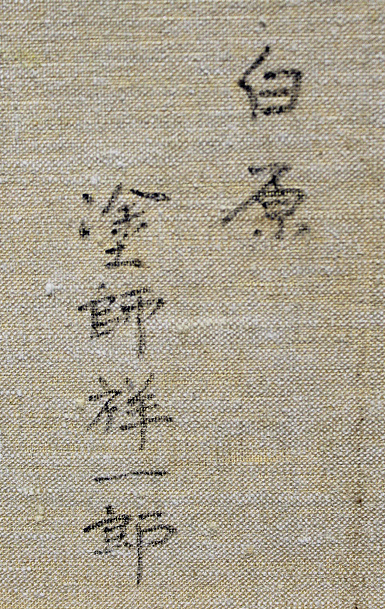 白原
塗師祥一郎